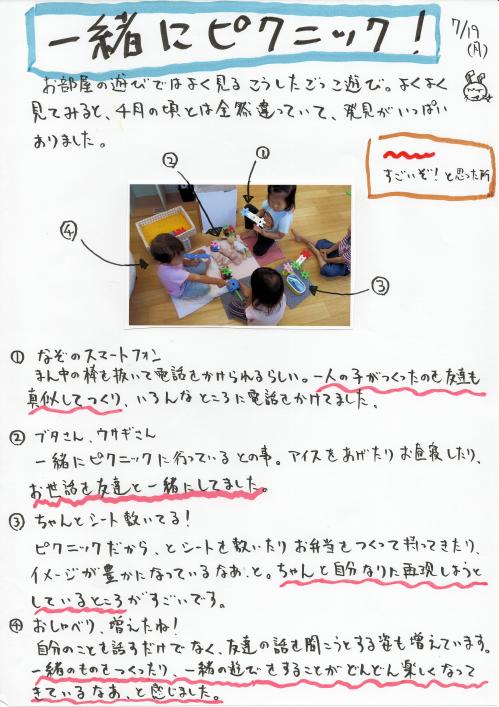 一緒にピクニック!
7/19
(月)
お部屋の遊びではよく見るこうしたごっこ遊び。よくよく
見てみると、4月の頃とは全然違っていて、発見がいっぱい
ありました。
すごいぞ!と思った所
①
②
③
④
① なぞのスマートフォン
まん中の棒を抜いて電話をかけられるらしい。一人の子がつくったのを友達も
真似してつくり、いろんなところに電話をかけてました。
② ブタさん、ウサギさん
一緒にピクニックに行っているとの事。アイスをあげたりお昼寝したり、
お世話を友達と一緒にしてました。
③ ちゃんとシート敷いてる!
ピクニックだから、とシートを敷いたりお弁当をつくって持ってきたり、
イメージが豊かになっているなあ、と。ちゃんと自分なりに再現しようと
しているところがすごいです。
④ おしゃべり、増えたね!
自分のことを話すだけでなく、友達の話を聞こうとする姿も増えています。
一緒のものをつくったり、一緒の遊びをすることがどんどん楽しくなって
きているなあ、と感じました。